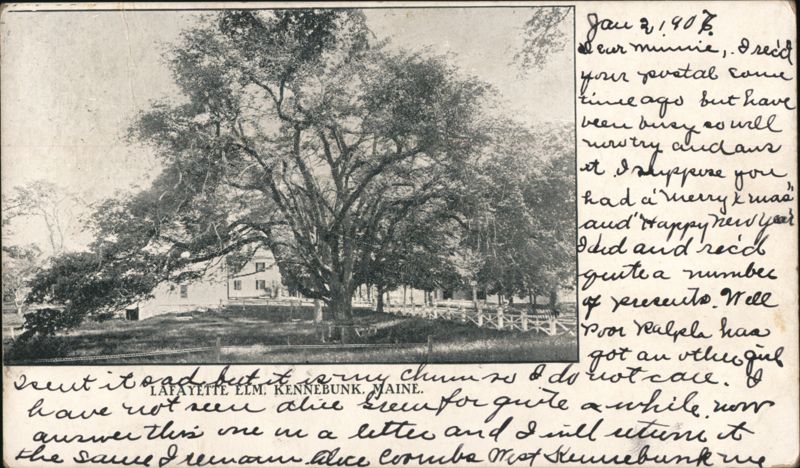 Jan 2, 1907.
Dear Minnie, I rec'd
your postal some
time ago but have
been busy so will
now try and ans
it. I suppose you
had a "Merry Xmas"
and "Happy New Year"
I did and rec'd
quite a number
of presents. Well
Poor Ralph has
got an other girl
isent it sad but it is my chum so I do not care. I
LAFAYETTE ELM, KENNEBUNK, MAINE.
have not seen alice for quite a while. now
answer this one in a letter and I will return it
the same I remain Alice Coombs West Kennebunk me